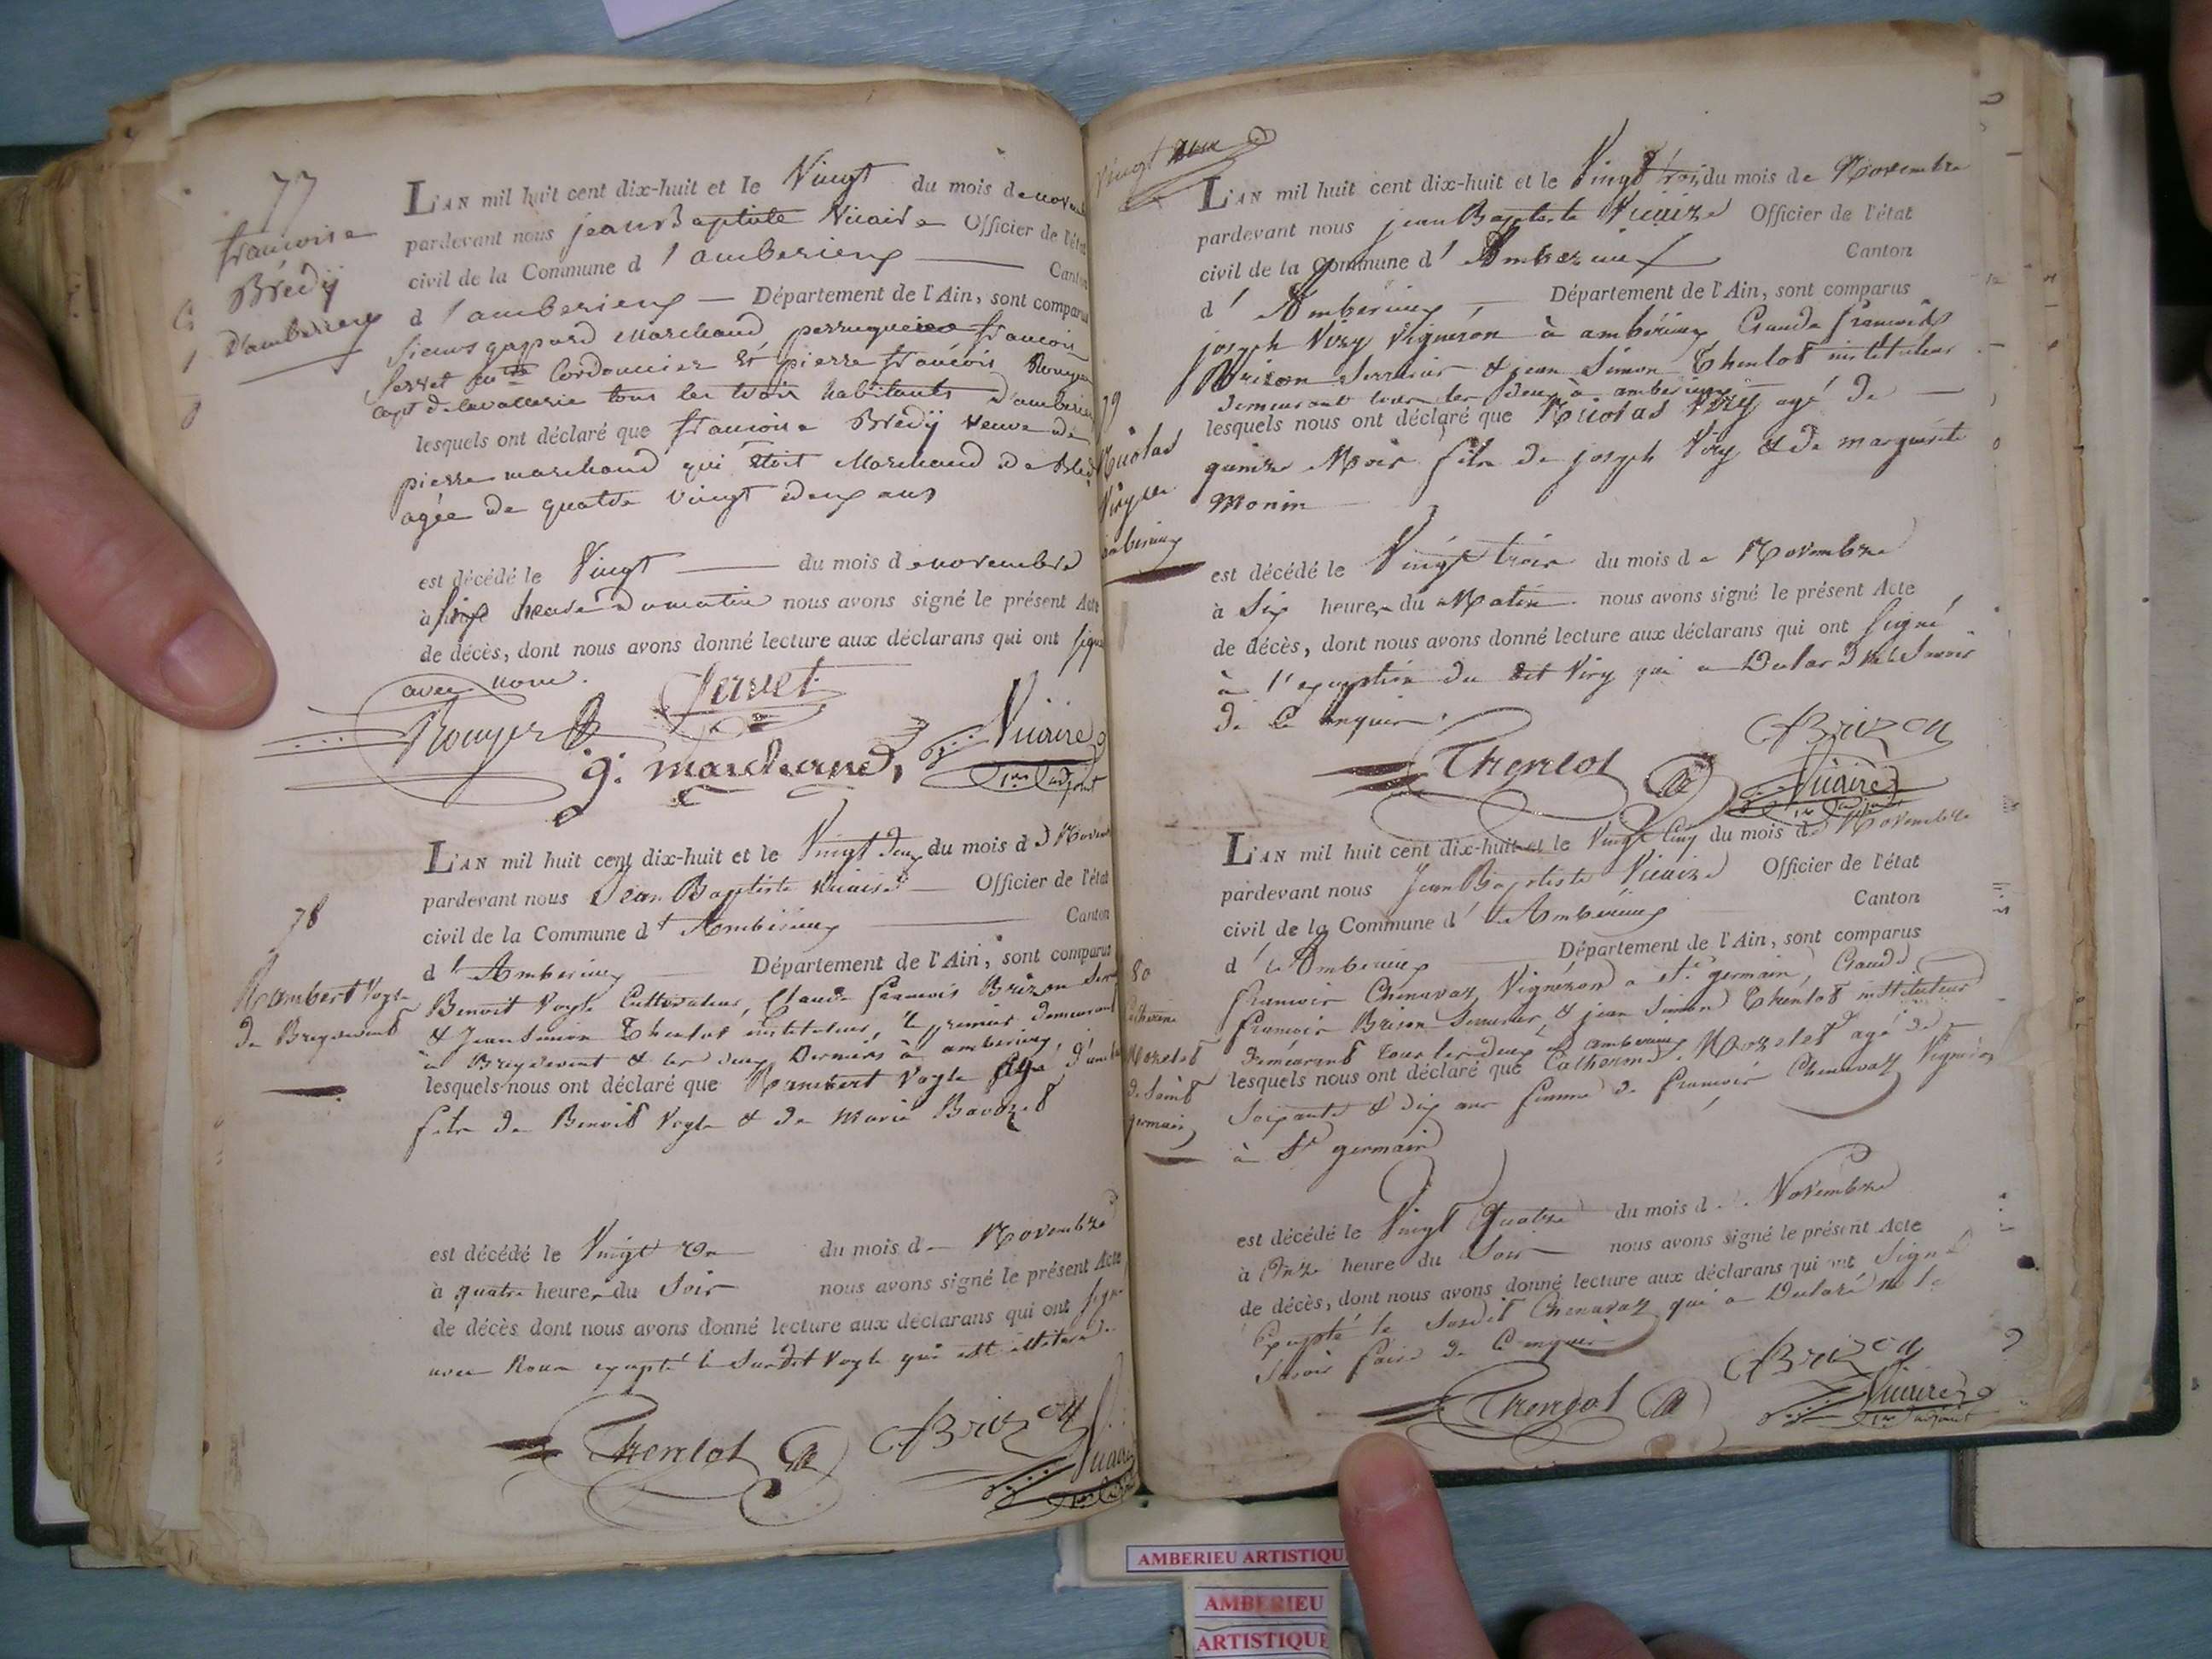 77
francoise
Brédÿ
d'amberieux
L'AN mil huit cent dix-huit et le Vingt du mois de novem
pardevant nous jean Baptiste Vicaire Officier de l'état
civil de la Commune d'amberieux Canton
d'amberieux Département de l'Ain, sont comparus
sieurs gaspard Marchand perruquier francois
Servet Cordonnier et pierre francois Rouyer
capt de cavallerie tous les trois habitants d'amberieu
lesquels ont déclaré que francoise Brédÿ veuve de
pierre marchand qui étoit Marchand de
agée de quatre vingt deux ans
est décédé le Vingt du mois de novembre
à heure du matin nous avons signé le présent Acte
de décès, dont nous avons donné lecture aux déclarans qui ont signé
avec nous.
Servet
Rouyer
g. marchand
Vicaire
1er adjoint
78
Rambert Vogle
de Breydevent
L'AN mil huit cent dix-huit et le Vingt deux du mois de Novem
pardevant nous Jean Baptiste Vicaire Officier de l'état
civil de la Commune d'Ambérieux Canton
d'Amberieux Département de l'Ain, sont comparus
Benoit Vogle Cultivateur, Claude francois Brizon Serru
& Jean Simon Thenlot instituteur, le premier demeurant
à Breydevent & les deux Derniers à amberieux,
lesquels nous ont déclaré que Rambert Vogle agé d'un
fils de Benoit Vogle & de Marie Bavozet
est décédé le Vingt un du mois de Novembre
à quatre heures du Soir nous avons signé le présent Acte
de décès dont nous avons donné lecture aux déclarans qui ont signé
avec Nous excepté le Susdit Vogle qui est illitéré.
Thenlot
Brizon
Vicaire
Vingt deux
79
Nicolas
Viry
amberieux
L'AN mil huit cent dix-huit et le Vingt trois du mois de Novembre
pardevant nous jean Baptiste Vicaire Officier de l'état
civil de la Commune d'Amberieux Canton
d'Ambérieux Département de l'Ain, sont comparus
joseph Viry Vigneron à ambérieux Claude francois
Brizon Serrurier & jean Simon Thenlot instituteur
demeurant tous les deux à amberieux
lesquels nous ont déclaré que Nicolas Viry agé de
quinze Mois fils de joseph Viry & de marguerite
Monin
est décédé le Vingt trois du mois de Novembre
à Six heures du Matin nous avons signé le présent Acte
de décès, dont nous avons donné lecture aux déclarans qui ont signé
à l'exception du dit Viry qui a Déclaré ne le Savoir
de ce enquis.
Thenlot
Brizon
Vicaire
1er adjoint
80
Catherine
Mozelet
de Saint
germain
L'AN mil huit cent dix-huit et le Vingt Cinq du mois de Novembre
pardevant nous Jean Baptiste Vicaire Officier de l'état
civil de la Commune d'Ambérieux Canton
d'Amberieux Département de l'Ain, sont comparus
francois Chenavaz Vigneron a St germain, Claude
francois Brizon Serrurier, & jean Simon Thenlot instituteur
demeurant tous les deux à amberieux
lesquels nous ont déclaré que Catherine Mozelet agé de
Soixante & dix ans femme de francois Chenavaz Vigneron
à St germain
est décédé le Vingt Quatre du mois de Novembre
à Onze heure du Soir nous avons signé le présent Acte
de décès, dont nous avons donné lecture aux déclarans qui ont Signé
Excepté le Susdit Chenavaz qui a Déclaré ne le
Savoir faire de ce enquis
Thenlot
Brizon
Vicaire
1er adjoint
AMBERIEU ARTISTIQU
AMBERIEU
ARTISTIQUE